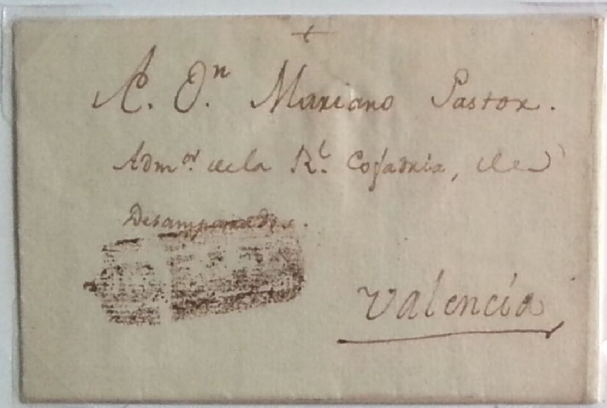 +
A. D.ⁿ Mariano Pastor.
Adm.ᵒʳ de la R.ˡ Cofadria, de
Desamparados.
Valencia